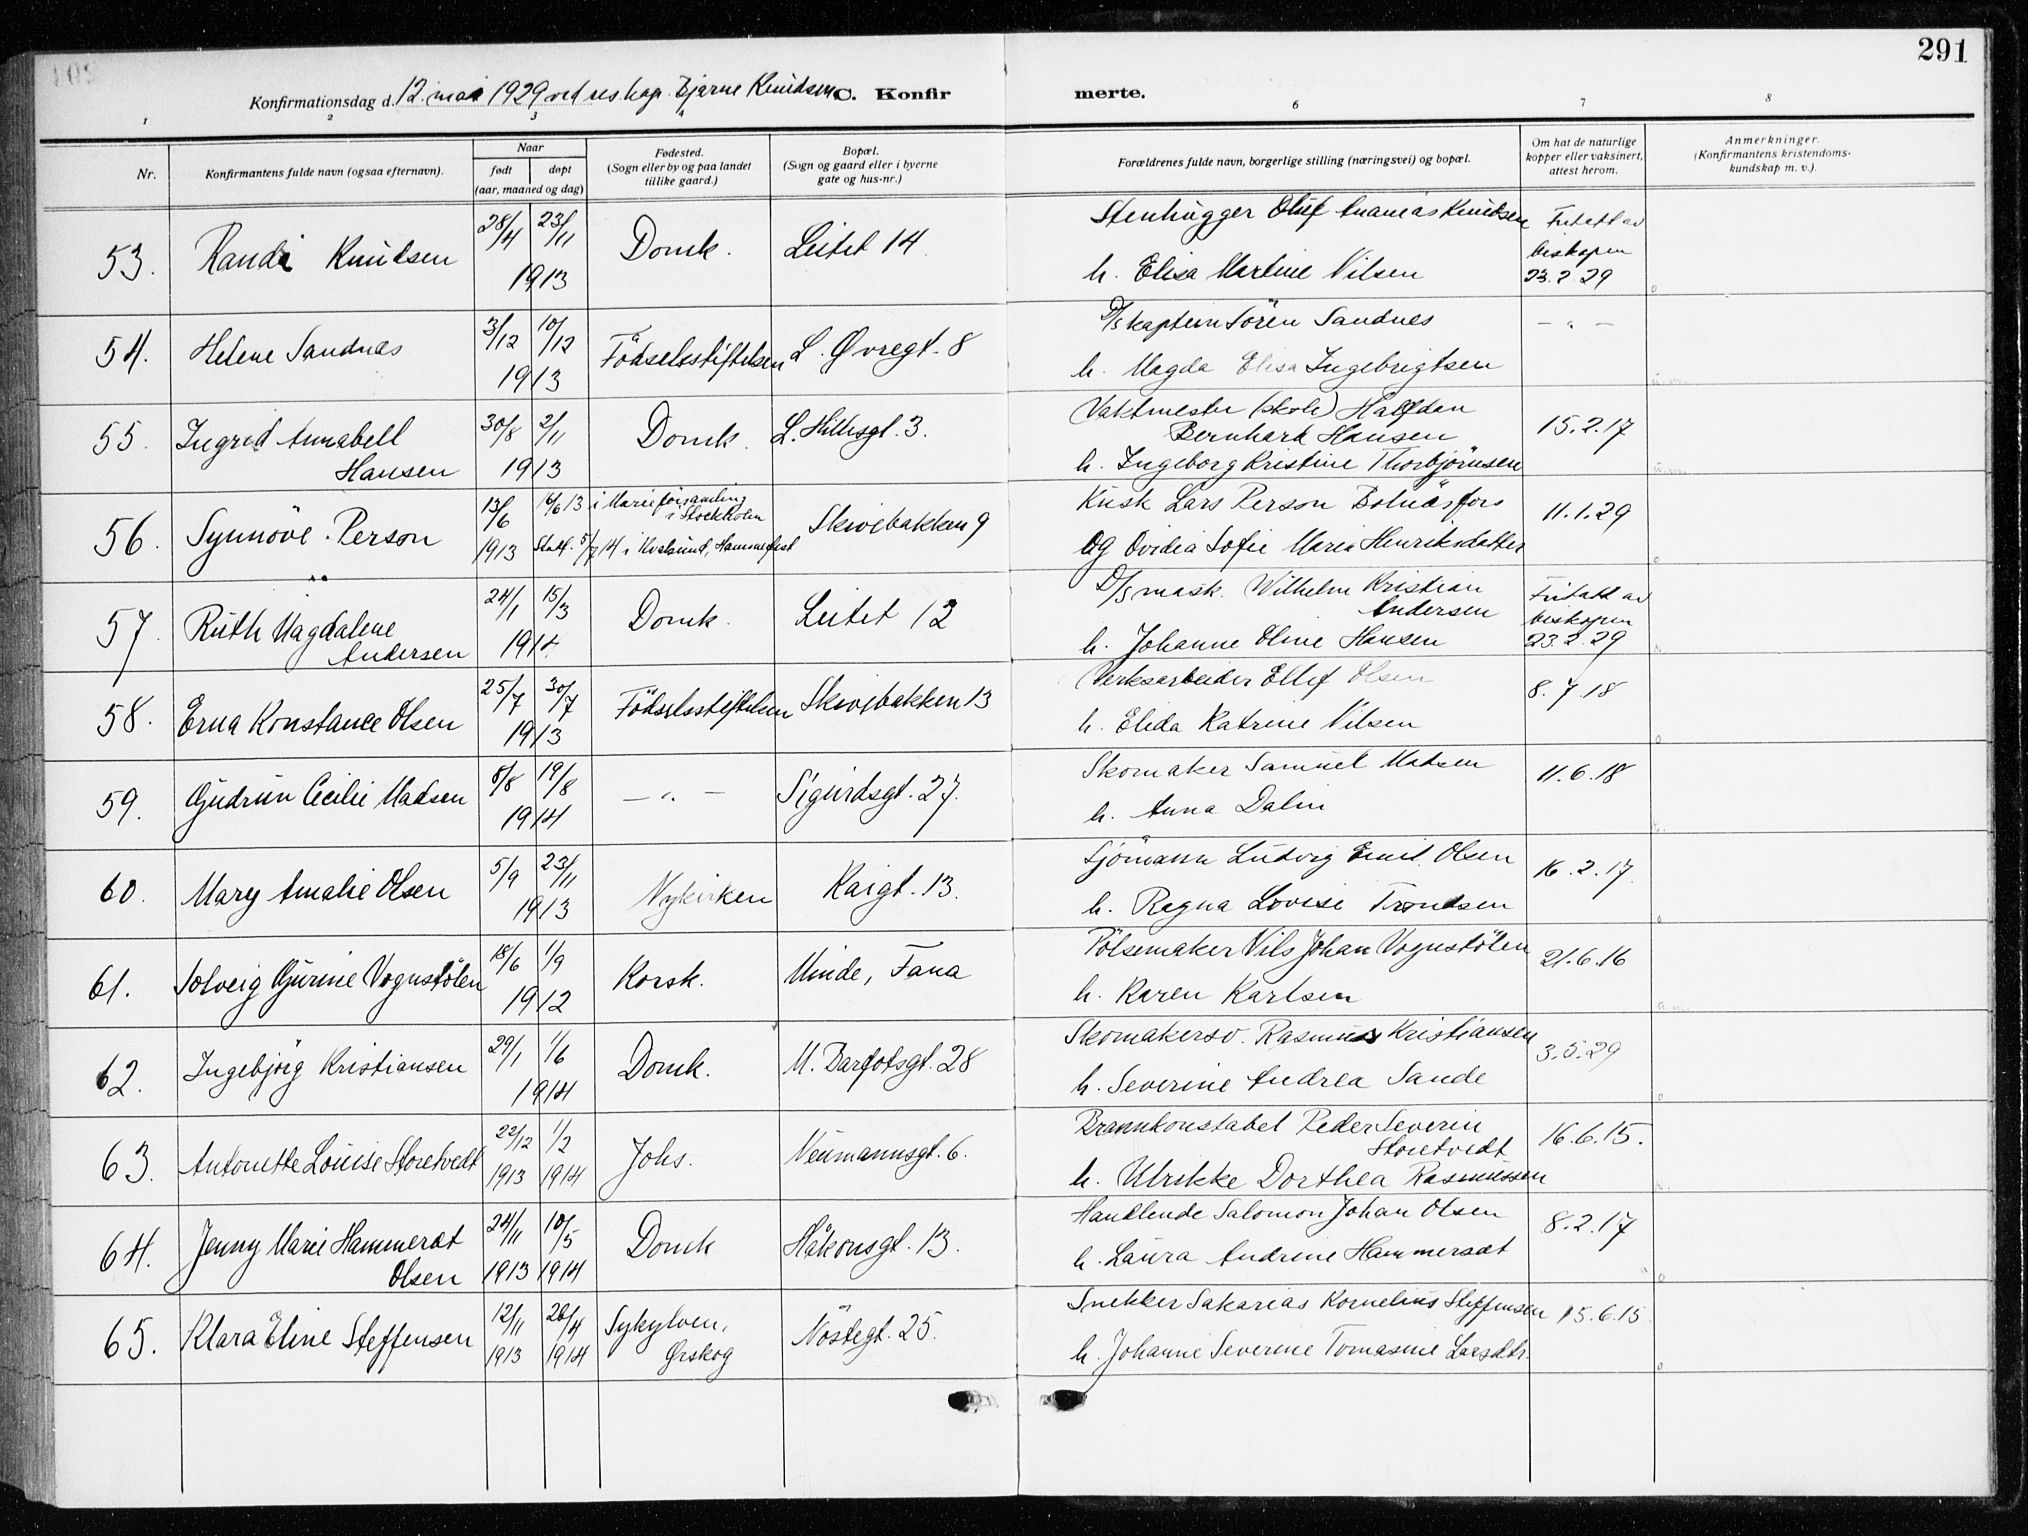 291
Konfirmationsdag d. 12. mai 1929 ved res kap. Bjarne Knudsen C. Konfirmerte.
1 2 3 4 6 7 8
Nr.
Konfirmantens fulde navn (ogsaa efternavn).
Naar
født døpt
(aar, maaned og dag)
Fødested.
(Sogn eller by og paa landet
tillike gaard.)
Bopæl.
(Sogn og gaard eller i byerne
gate og hus-nr.)
Forældrenes fulde navn, borgerlige stilling (næringsvei) og bopæl.
Om hat de naturlige
kopper eller vaksinert,
attest herom.
Anmerkninger.
(Konfirmantens kristendoms-
kundskap m. v.).
53. Randi Knudsen 28/4 23/11 1913 Domk. Leitet 14
Stenhugger Oluf Ananias Knudsen
h. Elisa Martine Nilsen
Fritatt av
biskopen
23.2.29
54. Helene Sandnes 3/12 10/12 1913 Födselsstiftelsen L. Øvregt. 8
D/s kaptein Sören Sandnes
h. Magda Elisa Ingebrigtsen
— „ —
55. Ingrid Annabell
Hansen
30/8 2/11 1913 Domk. L. Hillesgt. 3.
Vaktmester (skole) Halfdan
Bernhard Hansen
h. Ingeborg Kristine Thorbjörnsen
15.2.17
56. Synnöve Person 13/6 1913 16/6 13 i Marieförsamling
i Stockholm
Stadf. 5/7 14 i Kvalsund, Hammerfest
Skivebakken 9
Kusk Lars Person Bolnäsfors
og Ovidia Sofie Maria Henriksdatter
11.1.29
57. Ruth Magdalene
Andersen
24/1 15/3 1914. Domk. Leitet 12
D/s mask. Wilhelm Kristian
Andersen
h. Johanne Oline Hansen
Fritatt av
biskopen
23.2.29
58. Erna Konstance Olsen 25/7 30/7 1913 Födselsstiftelsen Skivebakken 13
Verksarbeider Ellef Olsen
h. Elida Katrine Nilsen
8.7.18
59. Gudrun Cecilie Madsen 8/8 19/8 1914 — „ — Sigurdsgt. 27.
Skomaker Samuel Madsen
h. Anna Dalin
11.6.18
60. Mary Amalie Olsen 5/9 23/11 1913 Nykirken Kaigt. 13.
Sjömann Ludvig Emil Olsen
h. Ragna Lovise Trondsen
16.2.17.
61. Solveig Gurine Vognstölen 18/6 1/9 1912 Korsk. Minde, Fana
Pölsemaker Nils Johan Vognstölen
h. Karen Karlsen
21.6.16
62. Ingebjörg Kristiansen 29/1 1/6 1914 Domk. M. Barfotsgt. 28
Skomakersv. Rasmus Kristiansen
h. Severine Andrea Sande
3.5.29
63. Antonette Louise Storetvedt 22/12 1913 1/2 1914 Johs. Neumannsgt. 6.
Brannkonstabel Peder Severin
Storetvedt
h. Ulrikke Dorthea Rasmussen
16.6.15.
64. Jenny Marie Hammersæt
Olsen
24/11 1913 10/5 1914 Domk. Håkonsgt. 13.
Handlende Salomon Johan Olsen
h. Laura Andrine Hammersæt
8.2.17
65. Klara Eline Steffensen 12/11 1913 26/4 1914 Sykylven,
Ørskog
Nöstegt. 25.
Snekker Sakarias Kornelius Steffensen
h. Johanne Severine Tomasine Larsdtr.
15.6.15